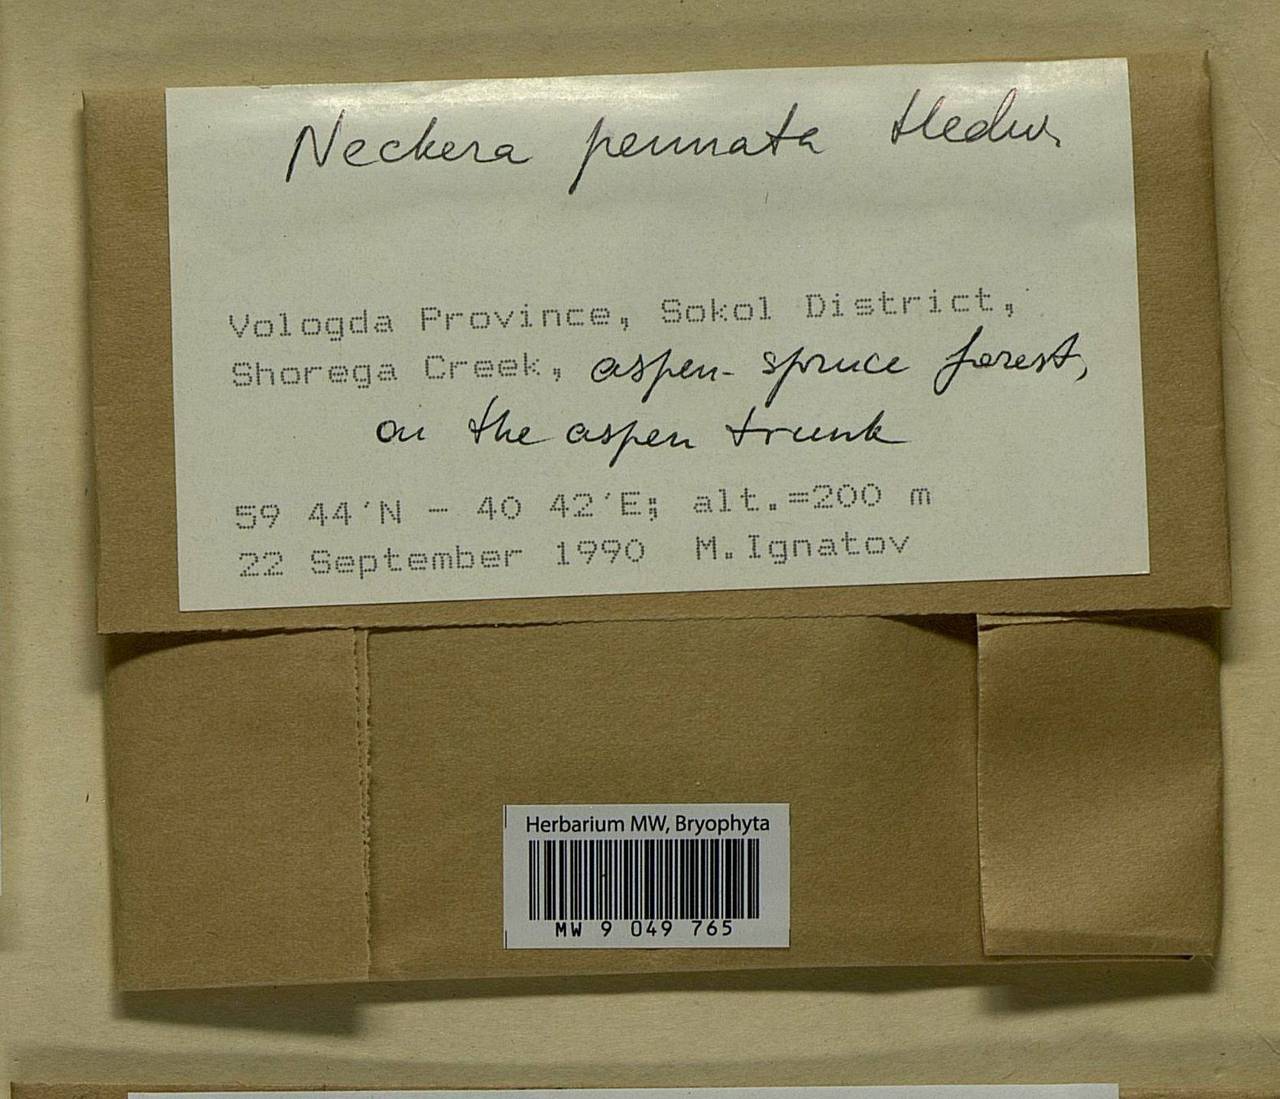 Neckera pennata Hedw.
Vologda Province, Sokol District,
Shorega Creek, aspen-spruce forest,
on the aspen trunk
59 44'N - 40 42'E; alt.=200 m
22 September 1990 M.Ignatov
Herbarium MW, Bryophyta
MW 9 049 765